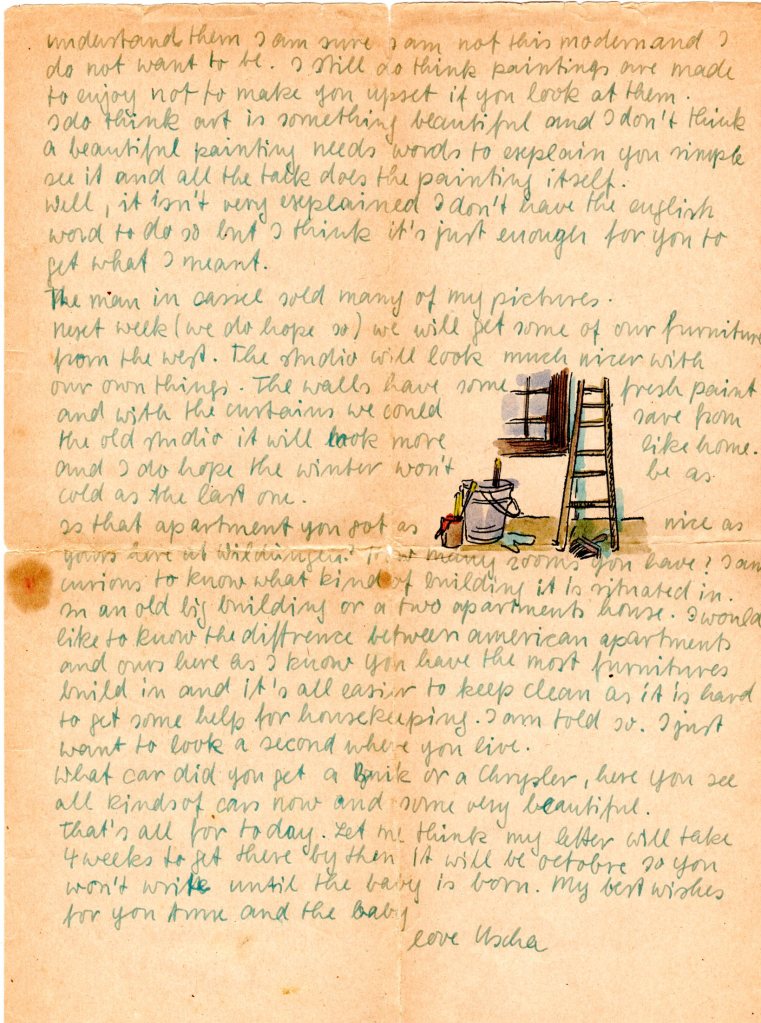 understand them I am sure I am not this modern and I
do not want to be. I still do think paintings are made
to enjoy not to make you upset if you look at them.
I do think art is something beautiful and I don't think
a beautiful painting needs words to explain you simple
see it and all the talk does the painting itself.
Well, it isn't very explained I don't have the english
word to do so but I think it's just enough for you to
get what I meant.
The man in cassel sold many of my pictures.
next week (we do hope so) we will get some of our furniture
from the west. The studio will look much nicer with
our own things. The walls have some fresh paint
and with the curtains we could save from
the old studio it will look more like home.
and I do hope the winter won't be as
cold as the last one.
is that apartment you got as nice as
yours here at Wildungen? How many rooms you have? I am
curious to know what kind of building it is situated in.
in an old big building or a two apartments house. I would
like to know the diffrence between american apartments
and ours here as I know you have the most furnitures
build in and it's all easier to keep clean as it is hard
to get some help for housekeeping. I am told so. I just
want to look a second where you live.
What car did you get a Buik or a Chrypler, here you see
all kinds of cars now and some very beautiful.
That's all for today. Let me think my letter will take
4 weeks to get there by then it will be octobre so you
won't write until the baby is born. My best wishes
for you Anne and the baby
love Uscha